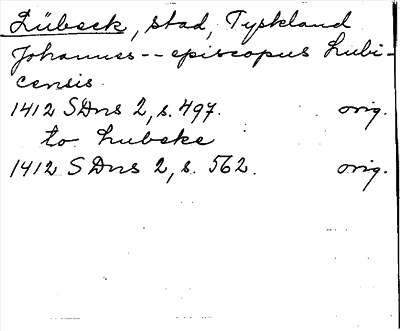 Lübeck, stad, Tyskland
Johannes -- episcopus Lubi-
censis.
1412 SDns 2, s. 497. orig.
to Lubeke
1412 SDns 2, s. 562. orig.